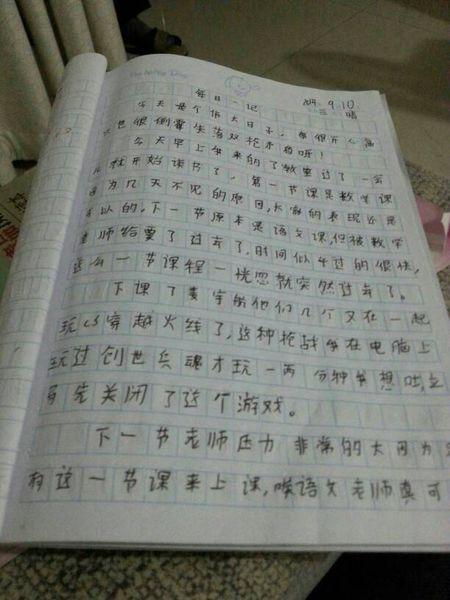 每日一记 2014. 9. 10
三 晴
今天是个伟大日子,
也很倒霉失落双枪木有呀!
今天早上我来的了教室过了一会
儿就开始读书了,第一节课是数学课
因为几天不见的原因,大家的表现还是
可以的。下一节原本是语文课,但被数学
老师给要了过去了,时间似乎过的很快,
这么一节课程一恍忽就突然过去了。
下课了 他们几个又在一起
玩CS穿越火线了,这种枪战我在电脑上
玩过创世兵魂才玩一两分钟我想吐,立
马先关闭了这个游戏。
下一节老师压力非常的大因为
有这一节课来上课,唉语文老师真可